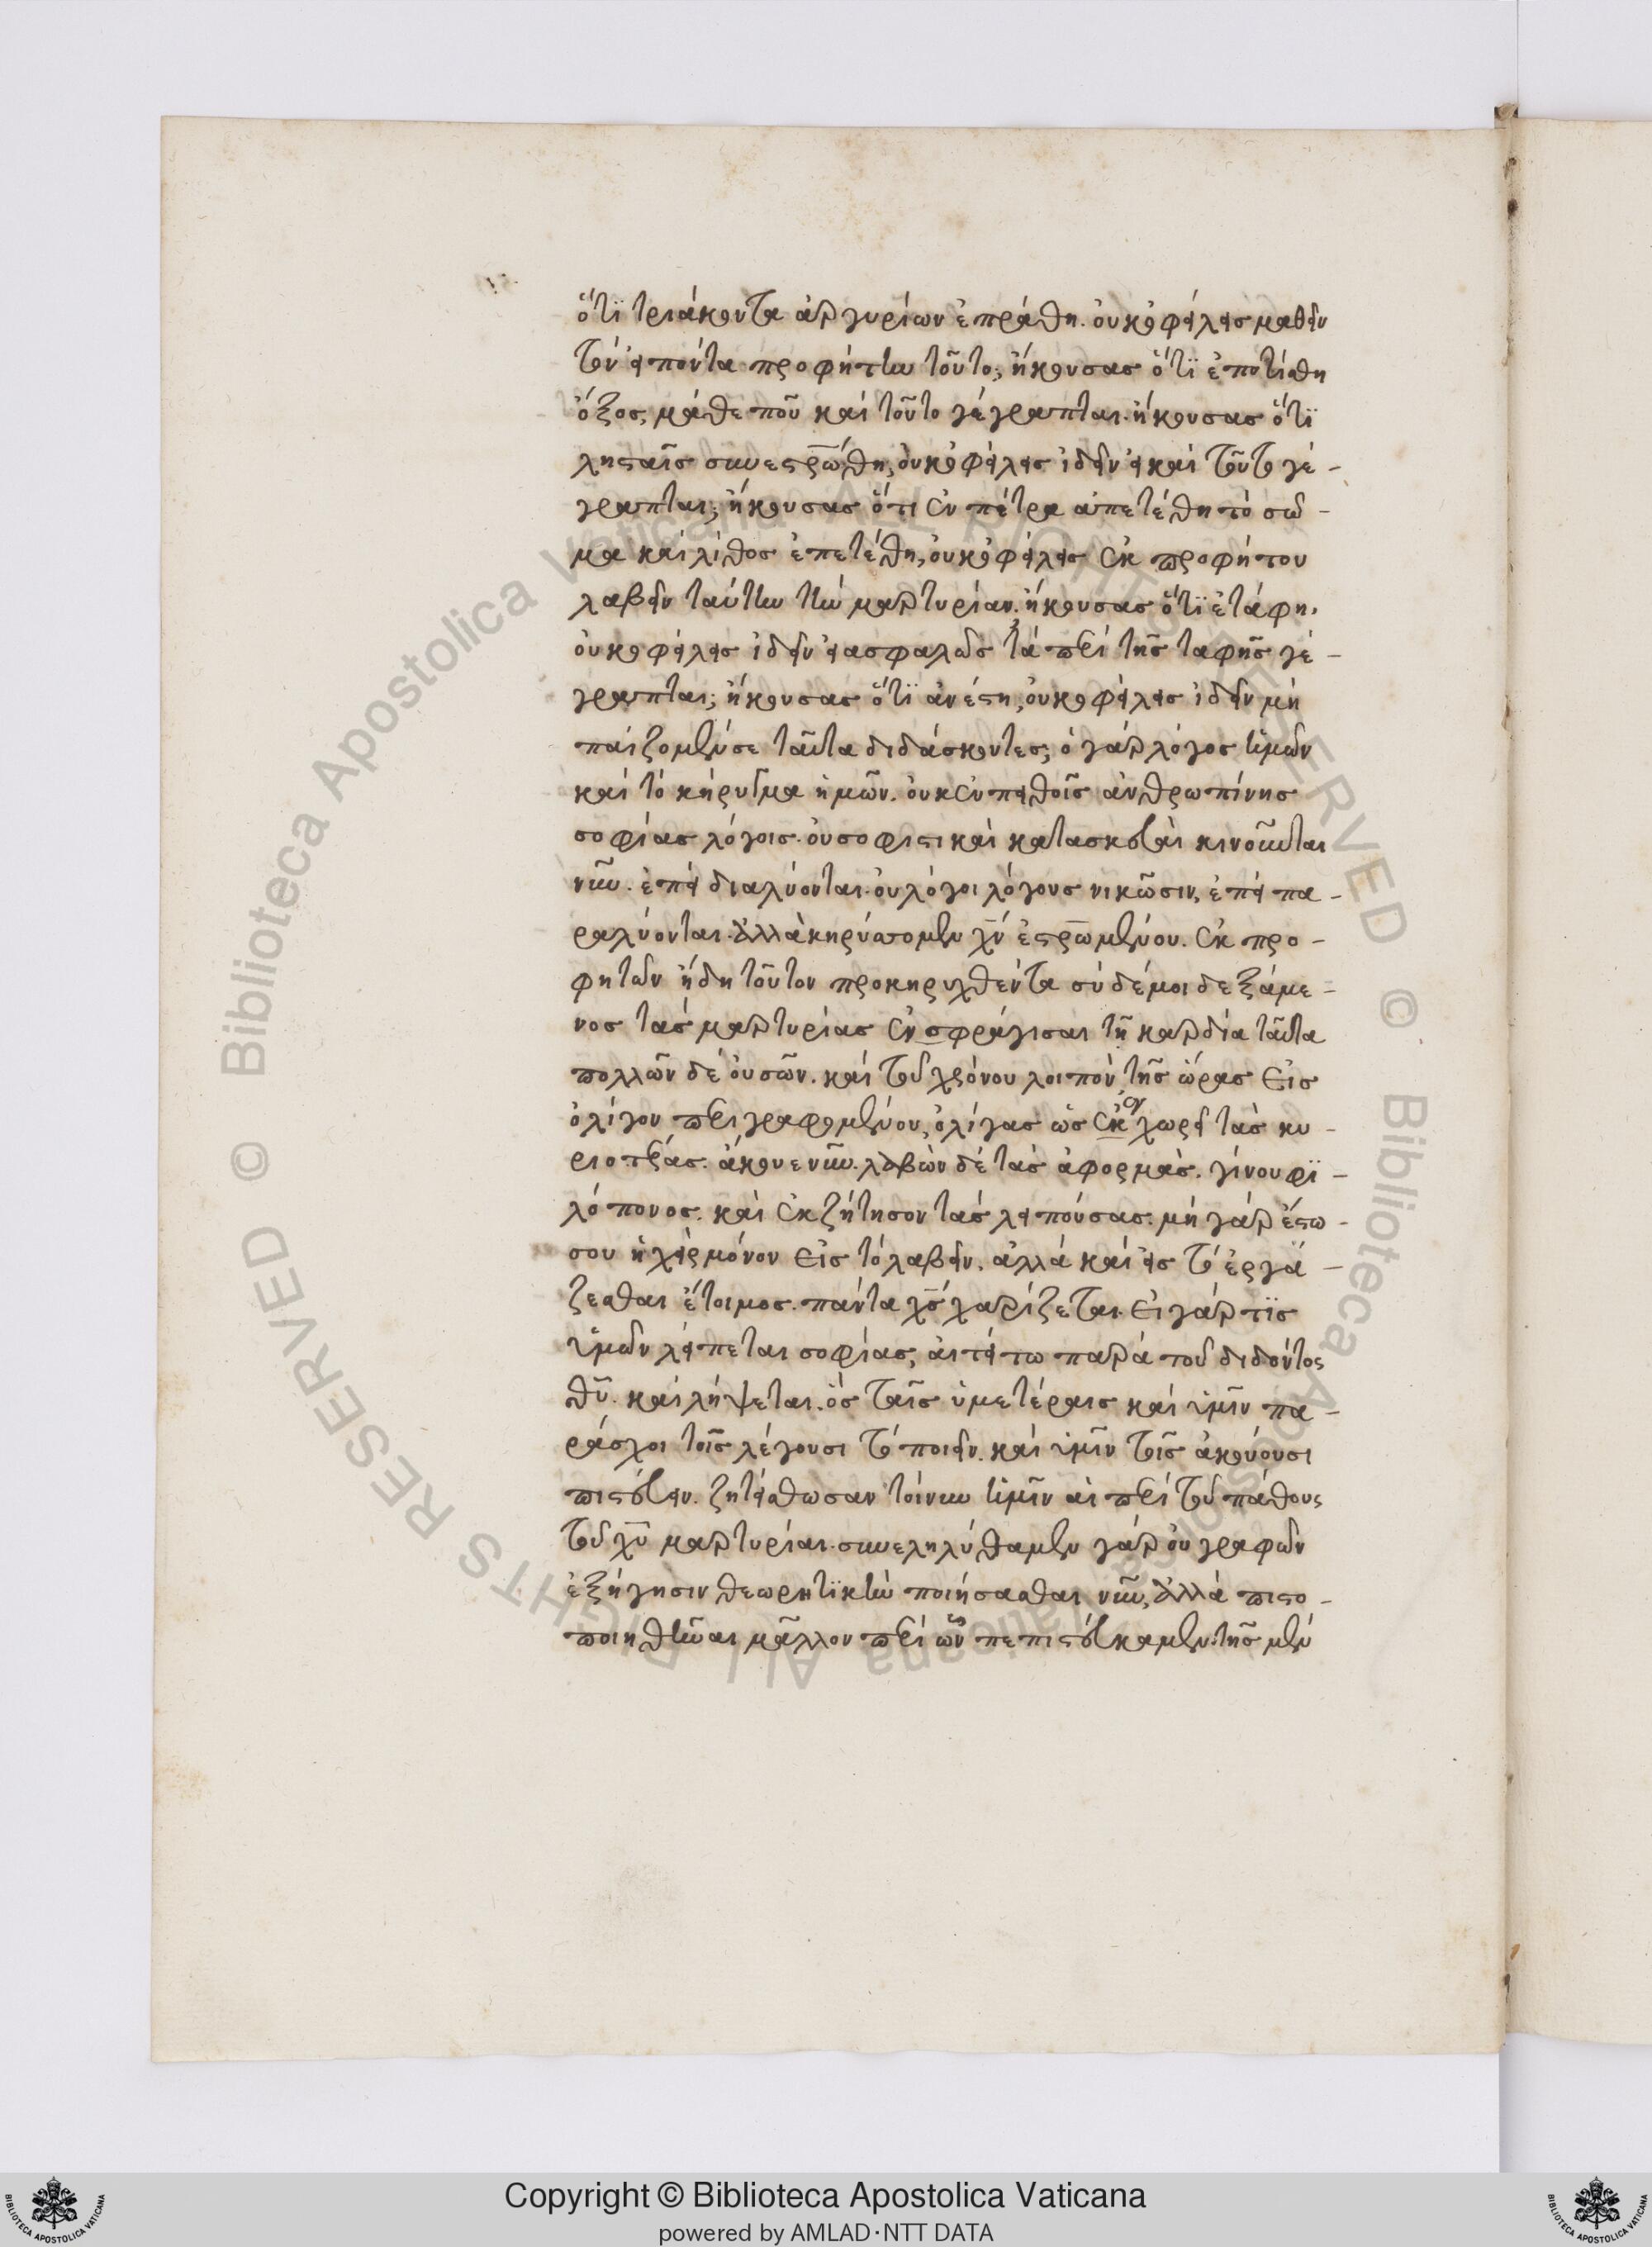 ὅτϊ τριάκοντα ἀργυρίων ἐπράθη. οὐκ ὀφείλεις μαθεῖν
τὸν εἰπόντα προφήτην τοῦτο; ἤκουσας ὅτϊ ἐποτίσθη
ὄξος, μάθε ποῦ καὶ τοῦτο γέγραπται. ἤκουσας ὅτϊ
λησταῖς συνεσ̅ρ̅ώθη, οὐκ ὀφείλεις ἰδεῖν εἰ καὶ τοῦτο γέ-
γραπται; ἤκουσας ὅτι ἐν πέτρα ἀπετέθη τὸ σῶ-
μα καὶ λίθος ἐπετέθη, οὐκ ὀφείλεις ἐκ προφήτου
λαβεῖν ταύτην τὴν μαρτυρίαν. ἤκουσας ὅτϊ ἐτάφη,
οὐκ ὀφείλεις ἰδεῖν εἰ ἀσφαλῶς τὰ περὶ τῆς ταφῆς γέ-
γραπται; ἤκουσας ὅτϊ ἀνέστη, οὐκ ὀφείλεις ἰδεῖν μὴ
παίζομέν σε ταῦτα διδάσκοντες; ὁ γὰρ λόγος ὑμῶν
καὶ τὸ κήρυγμα ἡμῶν. οὐκ ἐν πειθοῖς ἀνθρωπίνης
σοφίας λόγοις. οὐ σοφιστικαὶ κατασκευαὶ κινοῦνται
νῦν. ἐπεὶ διαλύονται. οὐ λόγοι λόγους νικῶσιν, ἐπεὶ πα-
ραλύονται. ἀλλὰ κηρύσσομεν χ̅ν̅ ἐσρ̅ωμένον. ἐκ προ-
φητῶν ἤδη τοῦτον προκηρυχθέντα σὺ δέ μοι δεξάμε-
νος τὰς μαρτυρίας ἐν σφράγισαι τῆ καρδία ταῦτα
πολλῶν δὲ οὐσῶν. καὶ τοῦ χρόνου λοιπὸν τῆς ὥρας εἰς
ὀλίγον περιγραφομένου, ὀλίγας ὡς ἐγχωρεῖ τὰς κυ-
ριοτέρας. ἄκουε νῦν. λαβὼν δὲ τὰς ἀφορμὰς. γίνου φϊ-
λόπονος. καὶ ἐκζήτησον τὰς λειπούσας. μὴ γὰρ ἔστω
σου ἡ χεὶρ μόνον εἰς τὸ λαβεῖν. ἀλλὰ καὶ εἰς τὸ ἐργά-
ζεσθαι ἕτοιμος. πάντα χ̅ς̅ χαρίζεται. εἰ γάρ τϊς
ὑμῶν λείπεται σοφίας, αἰτείτω παρὰ τοῦ διδόντος
θ̅υ̅. καὶ λήψεται. ὃς ταῖς ὑμετέραις καὶ ὑμῖν πα-
ράσχοι τοῖς λέγουσι τὸ ποιεῖν. καὶ ὑμῖν τοῖς ἀκούουσι
πιστεύειν. ζητείσθωσαν τοίνυν ὑμῖν αἱ περὶ τοῦ πάθους
τοῦ χ̅υ̅ μαρτυρίαι. συνεληλύθαμεν γὰρ οὐ γραφῶν
ἐξήγησιν θεωρητϊκὴν ποιήσασθαι νῦν, ἀλλὰ πιστο-
ποιηθῆναι μᾶλλον περὶ ὧν πεπιστεύκαμεν. τῆς μὲν